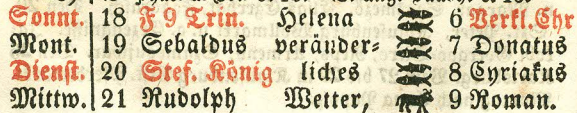 Sonnt. 18 F 9 Trin. Helena 6 Verkl. Chr
Mont. 19 Sebaldus veränder- 7 Donatus
Dienst. 20 Stef. König liches 8 Cyriakus
Mittw. 21 Rudolph Wetter, 9 Roman.